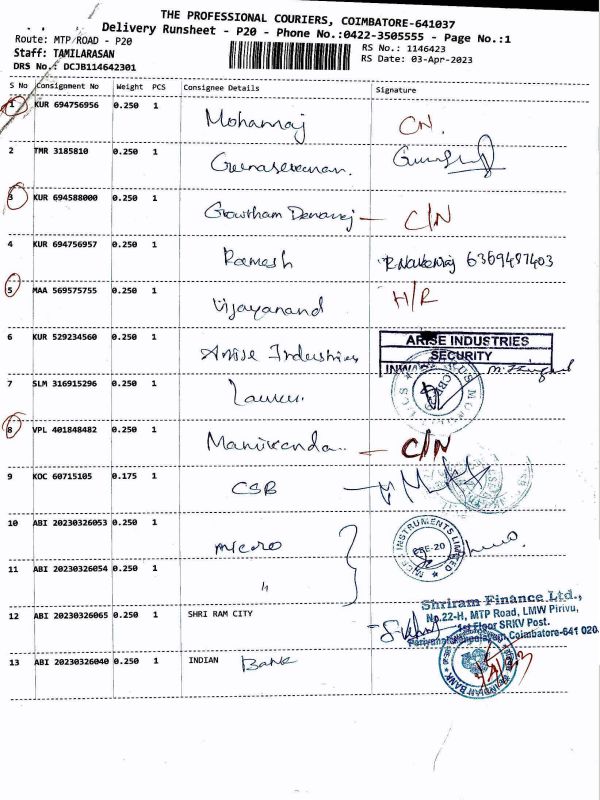 THE PROFESSIONAL COURIERS, COIMBATORE-641037
Delivery Runsheet - P20 - Phone No.:0422-3505555 - Page No.:1
Route: MTP ROAD - P20
RS No.: 1146423
Staff: TAMILARASAN
RS Date: 03-Apr-2023
DRS No.: DCJB114642301
S No Consignment No Weight PCS Consignee Details Signature
1 KUR 694756956 0.250 1 Mohanraj CN.
2 TMR 3185810 0.250 1
3 KUR 694588000 0.250 1 Gowtham - C/N
4 KUR 694756957 0.250 1 Ramesh 6369487403
5 MAA 569575755 0.250 1 Vijayanand H/R
6 KUR 529234560 0.250 1 Arise Industries
ARISE INDUSTRIES
SECURITY
7 SLM 316915296 0.250 1
8 VPL 401848482 0.250 1 - C/N
9 KOC 60715105 0.175 1 CSB
10 ABI 20230326053 0.250 1 micro
INSTRUMENTS LIMITED
11 ABI 20230326054 0.250 1 "
12 ABI 20230326065 0.250 1 SHRI RAM CITY
Shriram Finance Ltd.,
No.22-H, MTP Road, LMW Pirivu,
1st Floor SRKV Post.
Coimbatore-641 020.
13 ABI 20230326040 0.250 1 INDIAN Bank
INDIAN BANK